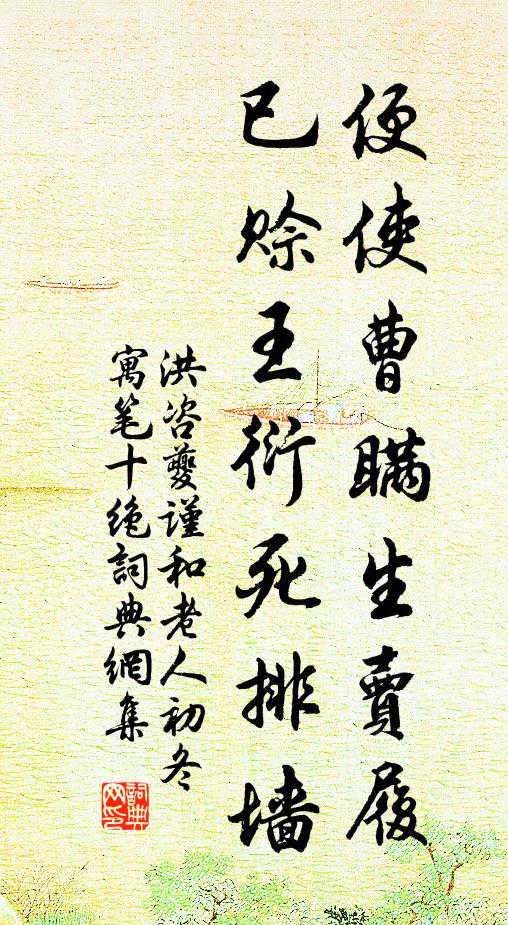 便使曹瞒生賣履
已赊王衍死排墙
洪咨夔谨和老人初冬
寓笔十绝詞典網集
詞典网印